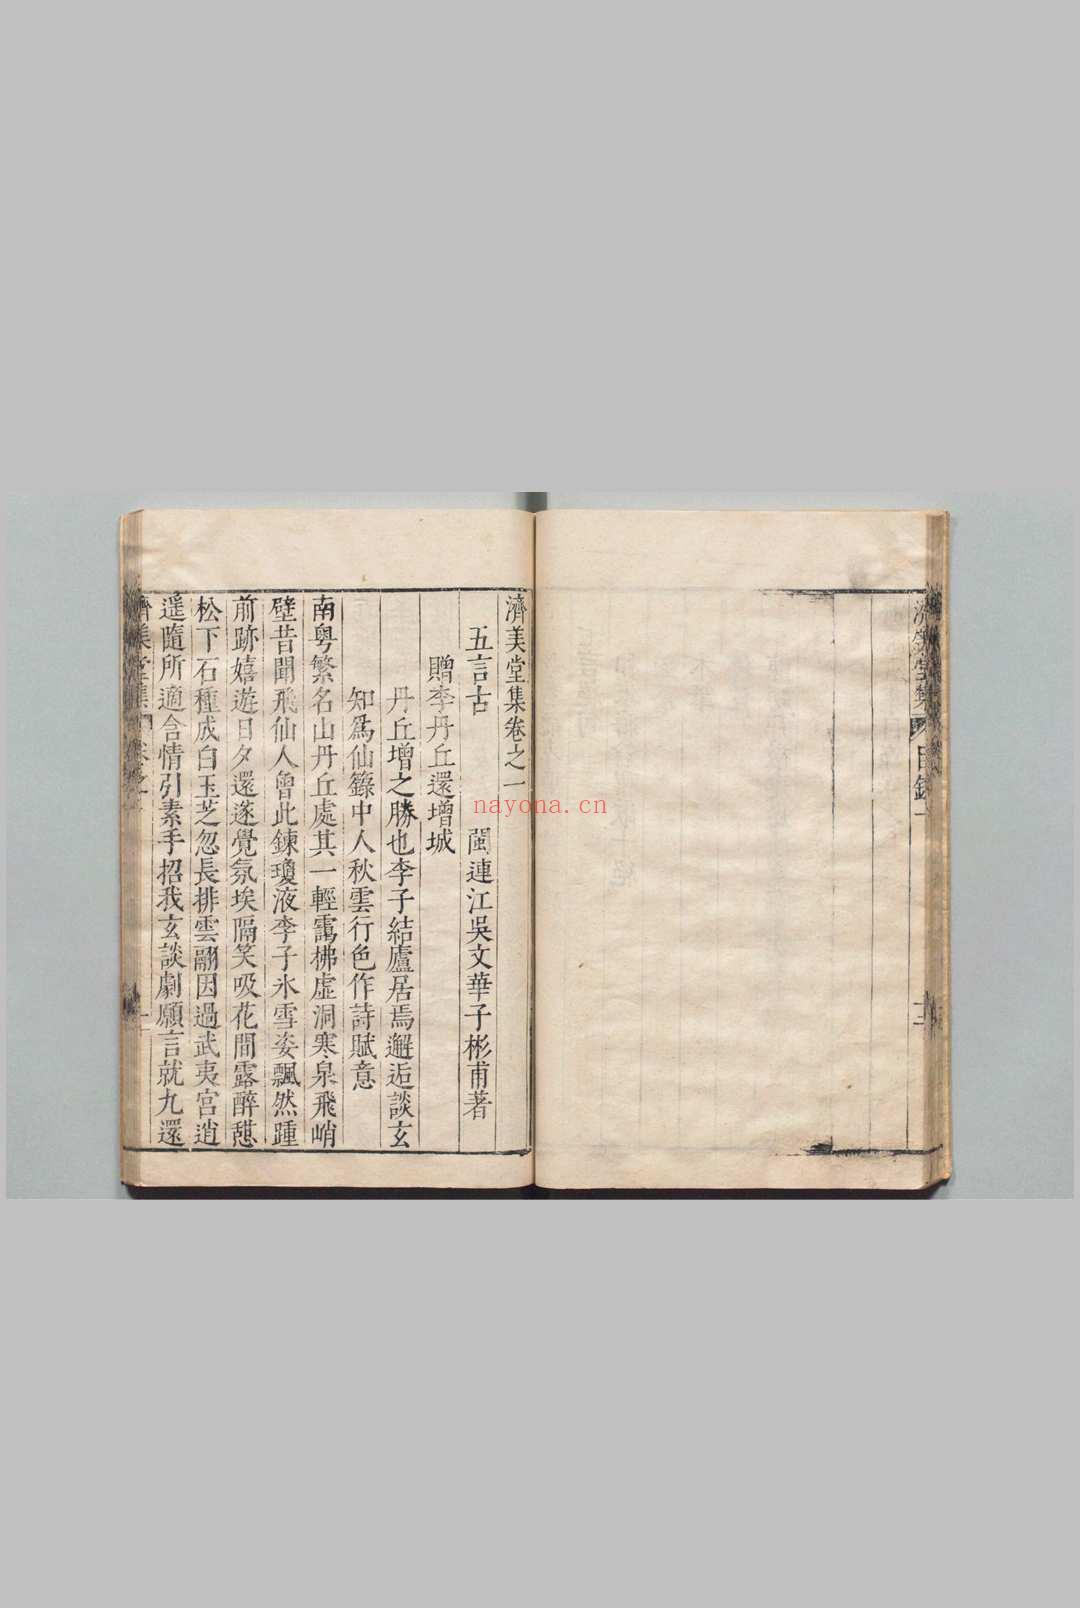 濟美堂集
目錄
三
濟美堂集卷之一
五言古
閩連江吳文華子彬甫著
贈李丹丘還增城
丹丘增之勝也李子結廬居焉邂逅談玄
知爲仙籙中人秋雲行色作詩賦意
南粵繁名山丹丘處其一輕靄拂虛洞寒泉飛峭
壁昔聞飛仙人曾此鍊瓊液李子氷雪姿飄然踵
前跡嬉遊日夕還遂覺氛埃隔笑吸花間露醉憇
松下石種成白玉芝忽長排雲翮因過武夷宮逍
遥隨所適含情引素手招我玄談劇願言就九還
濟美堂集
卷之一
nayona.cn